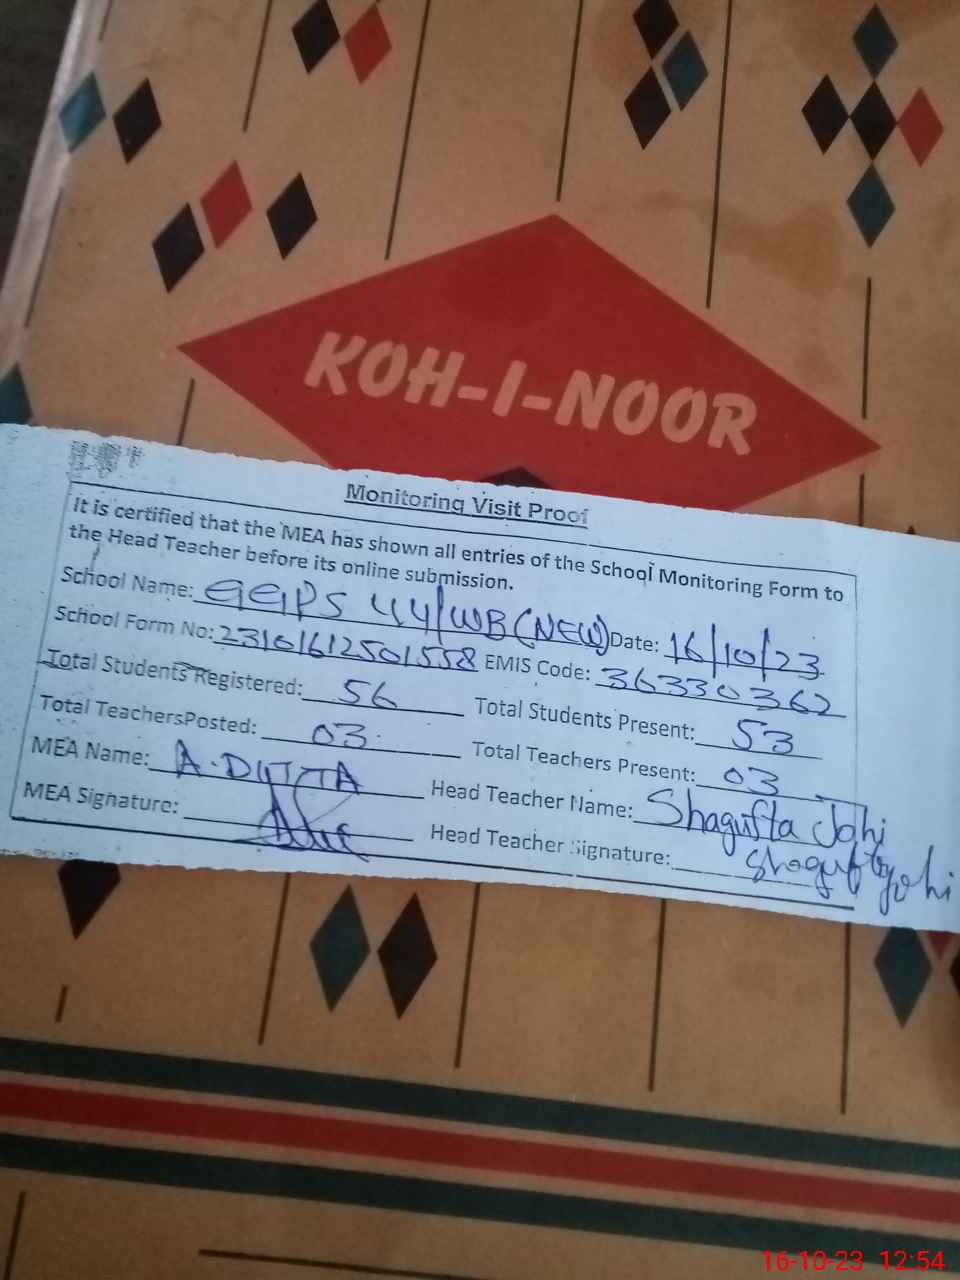 KOH-I-NOOR
Monitoring Visit Proof
It is certified that the MEA has shown all entries of the School Monitoring Form to
the Head Teacher before its online submission.
School Name: GGPS 44/WB(NEW) Date: 16/10/23
School Form No: 23101612501558 EMIS Code: 36330362
Total Students Registered: 56 Total Students Present: 53
Total TeachersPosted: 03 Total Teachers Present: 03
MEA Name: A. DITTA Head Teacher Name: Shagufta Johi
MEA Signature: Head Teacher Signature: Shagufta Johi
16-10-23 12:54